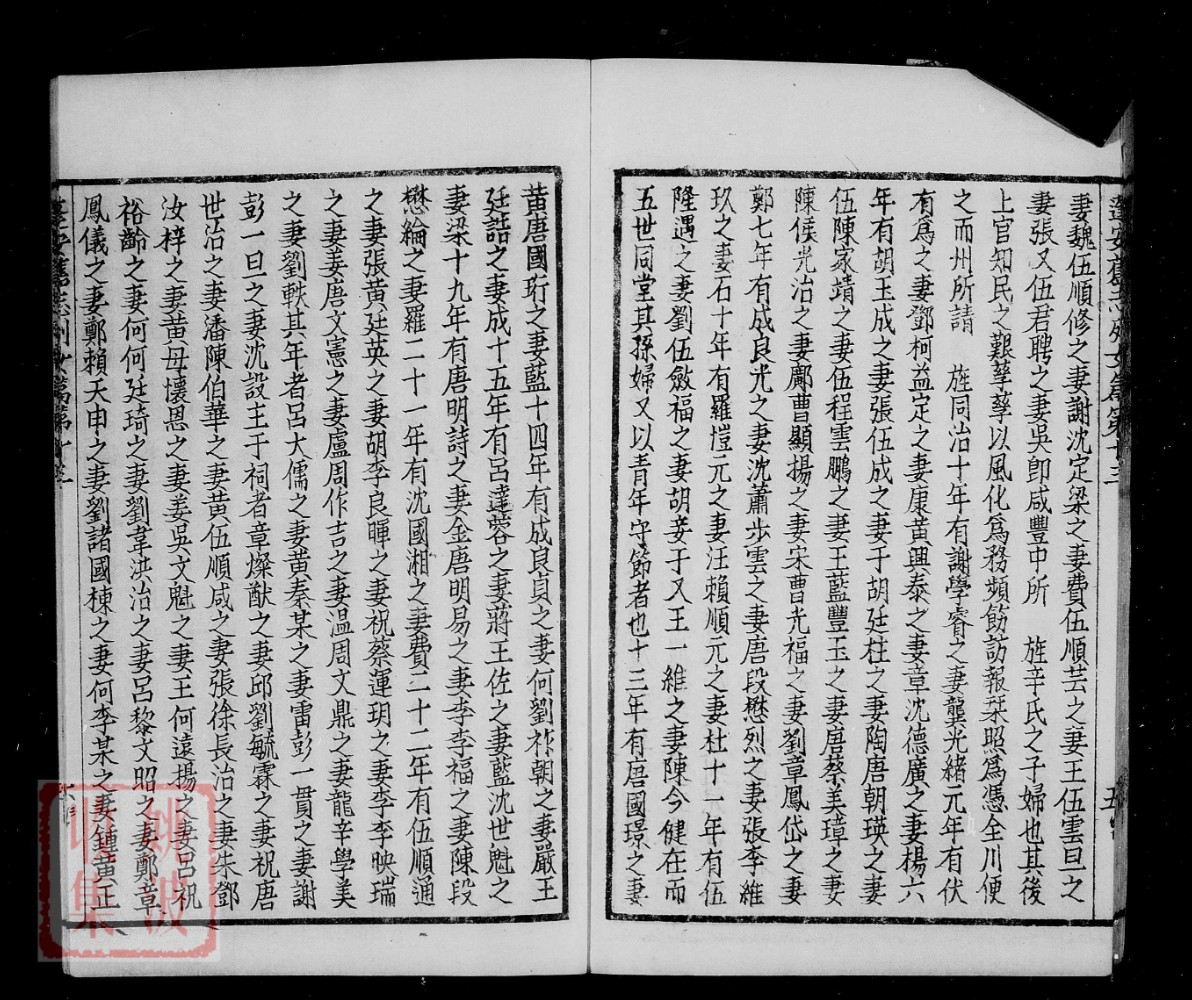 妻魏伍順修之妻謝沈定梁之妻費伍順芸之妻王伍雲旦之
妻張又伍君聘之妻吳卽咸豐中所　旌辛氏之子婦也其後
上官知民之艱孳孳以風化爲務頻飭訪報栞照爲憑全川便
之而州所請　旌同治十年有謝學睿之妻龔光緒元年有伏
有爲之妻鄧柯益定之妻康黃興泰之妻章沈德廣之妻楊六
年有胡玉成之妻張伍成之妻于胡廷柱之妻陶唐朝瑛之妻
伍陳家靖之妻伍程雲鵬之妻王藍豐玉之妻唐蔡美璋之妻
陳侯光治之妻鄺曹顯揚之妻宋曹光福之妻劉章鳳岱之妻
鄭七年有成良光之妻沈蕭步雲之妻唐段懋烈之妻張李維
玖之妻石十年有羅愷元之妻汪賴順元之妻杜十一年有伍
隆遇之妻劉伍斂福之妻胡妾于又王一維之妻陳今健在而
五世同堂其孫婦又以青年守節者也十三年有唐國璟之妻
黃唐國珩之妻藍十四年有成良貞之妻何劉祚朝之妻嚴王
廷誥之妻成十五年有呂蓮蓉之妻蔣王佐之妻藍沈世魁之
妻梁十九年有唐明詩之妻金唐明易之妻李李福之妻陳段
懋綸之妻羅二十一年有沈國湘之妻費二十二年有伍順通
之妻張黃廷英之妻胡李良暉之妻祝蔡運玥之妻李李映瑞
之妻姜唐文憲之妻盧周作吉之妻溫周文鼎之妻龍辛學美
之妻劉軼其年者呂大儒之妻黃秦某之妻雷彭一貫之妻謝
彭一旦之妻沈設主于祠者章燦猷之妻邱劉毓霖之妻祝唐
世治之妻潘陳伯華之妻黃伍順咸之妻張徐長治之妻朱鄧
汝梓之妻黃母懷恩之妻姜吳文魁之妻王何遠揚之妻呂祝
裕齡之妻何何廷琦之妻劉韋洪治之妻呂黎文昭之妻鄭章
鳳儀之妻鄭賴天申之妻劉諸國棟之妻何李某之妻鍾黃正
姚波
收集